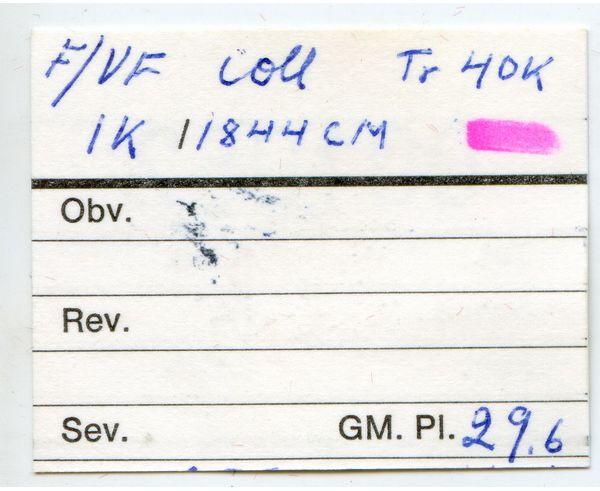 F/VF coll Tr 40K
1K 1844 CM
Obv.
Rev.
Sev. GM. Pl. 29.6